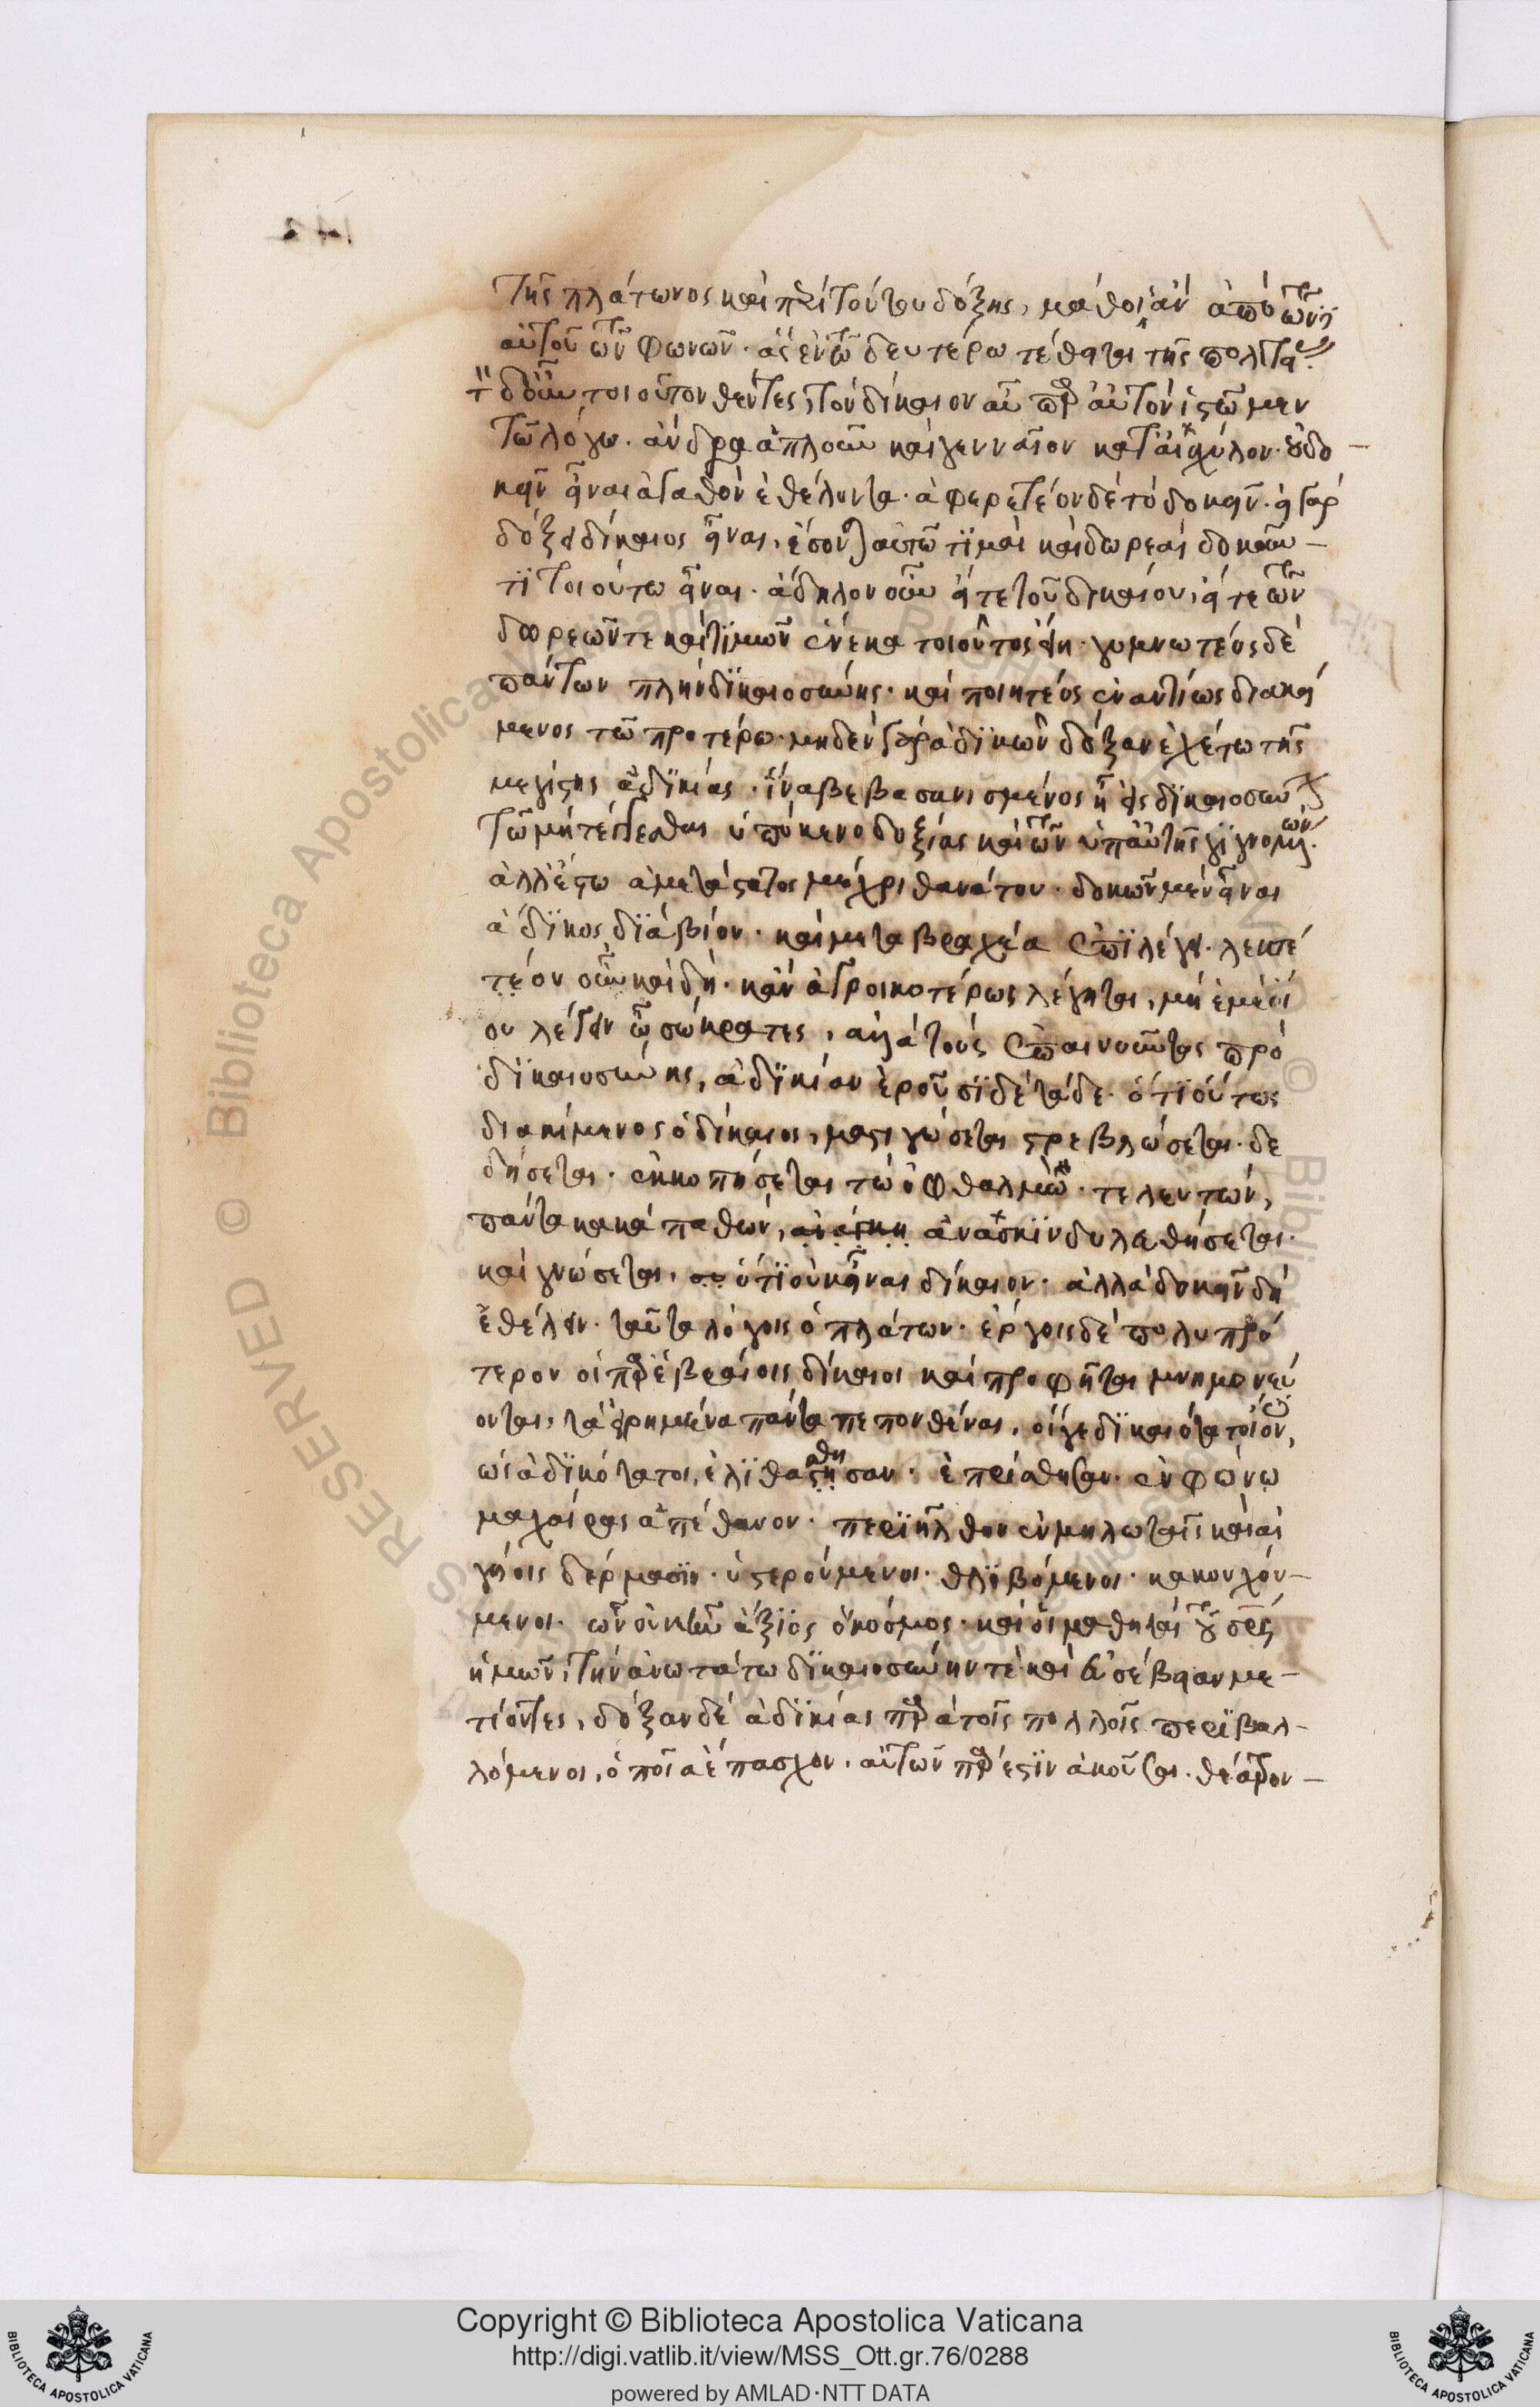 τῆς πλάτωνος καὶ περὶ τούτου δόξης, μάθοις ἂν ἀπὸ τῶν
αὐτοῦ τῶν φωνῶν· ἃς ἐν τῷ δευτέρω τέθηται τῆς πολιτεί
τ δοῦν τοιοῦτον θέντες, τὸν δίκαιον αὖ παρ αὐτὸν ἱστῶμεν
τῷ λόγω· ἄνδρα ἁπλοῦν καὶ γενναῖον κατ αἰσχύλον· οὐ δο–
κεῖν εἶναι ἀγαθὸν ἐθέλοντα· ἀφερετέον δὲ τὸ δοκεῖν· εἰ γὰρ
δόξει δίκαιος εἶναι, ἔσονται αὐτῷ τϊμαὶ καὶ δωρεαὶ δοκοῦν–
τϊ τοιούτω εἶναι· ἄδηλον οὖν εἴτε τοῦ δικαίου, εἴτε τῶν
δωρεῶν τε καὶ τϊμῶν ἕνεκα τοιοῦτος εἴη· γυμνωτέος δὲ
πάντων πλὴν δϊκαιοσύνης· καὶ ποιητέος ἐναντίως διακεί
μενος τῷ προτέρω· μηδὲν γὰρ ἀδϊκῶν δόξαν ἐχέτω τῆς
μεγίστης ἀδϊκίας· ἵνα βεβασανισμένος ᾖ εἰς δϊκαιοσύν
τῷ μὴ τέγγεσθαι ὑπὸ κενοδοξίας καὶ τῶν ὑπ αὐτῆς γϊγνομένων·
ἀλλ ἔστω ἀμετάστατος μέχρι θανάτου· δοκῶν μὲν εἶναι
ἄδϊκος δϊὰ βίου· καὶ μετα βραχέα ἐπϊλέγει· λεκτέ
τέον οὖν καὶ δὴ· κἂν ἀγροικοτέρως λέγηται, μὴ ἐμὲ οἴ
ου λέγειν ὦ σώκρατες, ἀλλὰ τοὺς ἐπαινοῦντας πρὸ
δϊκαιοσύνης, ἀδϊκίαν ἐροῦσϊ δὲ τάδε· ὅτϊ οὕτως
διακίμενος ὁ δίκαιος, μαστιγώσεται στρεβλώσεται· δε
δήσεται· ἐκκοπήσεται τὼ ὀφθαλμὼ· τελευτῶν,
πάντα κακὰ παθών, ἀνάγκη ἀνασκϊνδυλευθήσεται·
καὶ γνώσεται, σε ὅτϊ οὐκ εἶναι δίκαιον· ἀλλὰ δοκεῖν δὴ
ἐθέλειν· ταῦτα λόγοις ὁ πλάτων· ἔργοις δὲ πολυ πρό
τερον οἱ παρ ἑβραίοις δίκαιοι καὶ προφῆται μνημονεύ
ονται, τὰ εἰρημένα πάντα πεπονθέναι, οἵγε δϊκαιότατοι ὄντες,
ὡς ἀδϊκότατοι, ἐλϊθάσθησαν· ἐπρίσθησαν· ἐν φώνω
μαχαίρας ἀπέθανον· περϊῆλθον ἐν μηλωταῖς καὶ αἰ
γείοις δέρμασϊν· ὑστερούμενοι· θλϊβόμενοι· κακουχού–
μενοι· ὧν οὐκ ἦν ἄξϊος ὁ κόσμος· καὶ οἱ μαθηταὶ τοῦ σρς
ἡμῶν, τὴν ἀνωτάτω δϊκαιοσύνην τὲ καὶ εὐσέβειαν με–
τιόντες, δόξαν δὲ ἀδϊκίας παρὰ τοῖς πολλοῖς περϊβαλ–
λόμενοι, ὁποῖα ἔπασχον, αὐτῶν πάρεστϊν ἀκοῦσαι· θέατρον–
Copyright © Biblioteca Apostolica Vaticana
http://digi.vatlib.it/view/MSS_Ott.gr.76/0288
powered by AMLAD·NTT DATA